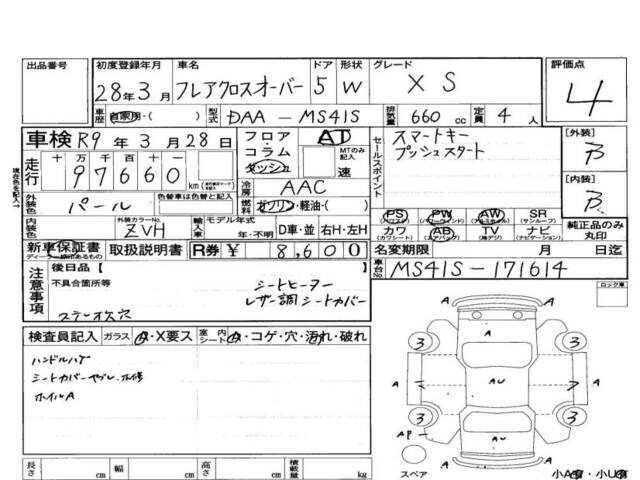 出品番号
初度登録年月
28年3月
車名
フレアクロスオーバー
ドア
5
形状
W
グレード
XS
評価点
4
車歴 自家用・( )
型式 DAA-MS41S
排気量 660 cc
定員 4 人
車検 R9 年 3 月 28 日
フロア・コラム ダッシュ
AT
MTのみ記入
速
セールスポイント
スマートキー
プッシュスタート
[外装]
B
[内装]
B
現在色を記入→
走行
十 万 千 百 十 一
97660 km
冷房 AAC
燃料 ガソリン・軽油・( )
外装色 パール
色替車は色替と記入
内装色
外装カラーNo.
ZVH
輸入車
モデル年式
年・不明
D車・並
右H・左H
PS (パワステ)
PW (パワーウィンドウ)
AW (アルミホイル)
SR (サンルーフ)
カワ (カワシート)
AB (エアバッグ)
TV (地デジ)
ナビ (ナビゲーション)
純正品のみ丸印
新車保証書
ディーラー捺印あるもの
取扱説明書
R券 ¥ 8,600
名変期限 月 日迄
車台No. MS41S-171614
注意事項
後日品【 】
不具合箇所等
シートヒーター
レザー調シートカバー
ステーオス穴
ロック車
検査員記入
ガラス
A・X要ス
室内シート
A・コゲ・穴・汚れ・破れ
ハンドルハゲ
シートカバーヤブレ、補修
ホイルA
A
A
3
3
A
AU
A
3
3
AP
A
AU
A
A
スペア
小A有・小U有
長さ cm
幅 cm
高さ cm
積載量 kg